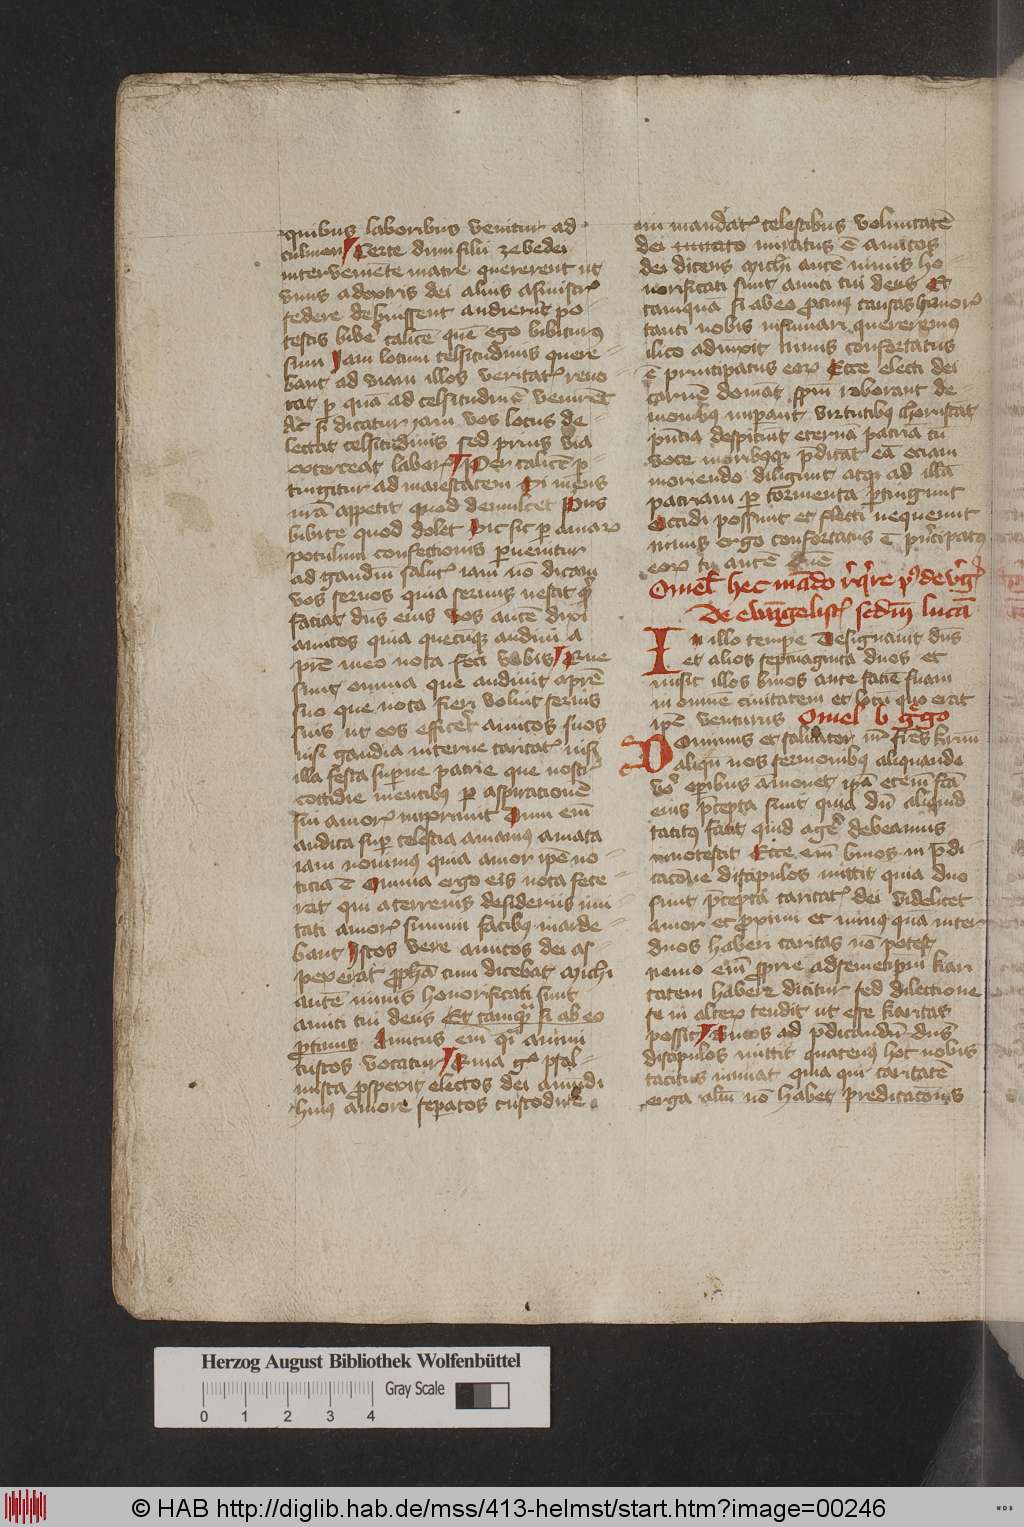 quibus laboribus venitur ad
culmen Certe dum filii zebedei
interveniēte matre quererent ut
vnus a dextris dei alius a sinistr̄
sedere debuissent audierūt po-
testis bibe᷑ calicē quē ego bibiturꝰ
sum Jam locum celsitudinis quere-
bant ad viam illos veritat᷑ revo
cat ꝑ quā ad celsitudinē venirēt
Ac si dicatur iam vos locus de-
lectat celsitudinis sed prius via
exerceat labor᷑ Per calicē ꝑ-
tingitur ad maiestatem Si mens
vr̄a appetit quod demulcet Prius
bibite quod dolet Sic sic ꝑ amarū
poculum confectionis ꝑuenitur
ad gaudiū salut᷑ iam nō dicam
vos seruos quia seruus nescit qͥd
faciat dn̄s eius Vos autē dixi
amicos quia quecūqꝫ audiui a
pr̄e meo nota feci vobis Que
sunt omnia que audiuit a pr̄e
suo que nota fieri voluit seruis
suis ut eos effice᷑t amicos suos
nisi gaudia interne caritat᷑ nisi
illa festa superne patrie que nostr᷑
cottidie mentibꝰ ꝑ aspirationē
sui amor᷑ imprimit Dum em̄
audita suꝑ celestia amamꝰ amata
iam nouimꝰ quia amor ip̄e no-
ticia ē Omnia ergo eis nota fece-
rat qui a terrenis desideriis im̄u
tati amor᷑ summi facibꝰ inarde-
bant Istos vere amicos dei as-
pexerat ꝓphā cum dicebat Michi
autē nimis honorificati sunt
amici tui deus Et tamqͣ si ab eo
ꝓtinus Amicus em̄ qͣsi animi
custos vocatur Quia gͦ psal-
mista ꝓspexit electos dei amūdi
huiꝰ amore sep̄atos custodire
in mandat᷑ celestibus voluntatē
dei miratus ē amicos
dei dicens Michi autē nimis ho-
norificati sunt amici tui deus Et
tamquā si ab eo ꝓtinꝰ causas honor᷑
tanti nobis insinuari quereremꝰ
ilico adiunxit Nimis confortatus
ē principatus eorꝝ Ecce electi dei
carnē domāt sp̄m roborant de
monibꝰ imꝑant virtutibꝰ choruscāt
p̄ntia despiciūt eternā patriā tā
voce moribusqꝫ p̄dicāt eā eciam
moriendo diligunt atqꝫ ad illā
patriam ꝑ tormenta ꝑtingunt
Occidi possunt et flecti nequeunt
nimis ergo confortatus ē pͥncipatꝰ
eorꝝ tu autē
Omel᷑ hec mādo
De ewāgelist᷑ scdm̄ lucā
In illo tempe᷑ Designauit dn̄s
et alios septuaginta duos et
misit illos binos ante faciē suam
in omnē ciuitatem et locū quo erat
ip̄e venturus Omel᷑ b gͤgo
Dominus et saluator nr̄ frēs kr̄mi
aliqn̄ nos sermonibꝰ aliquando
vͦ oꝑibus amonet ip̄a etem̄ fc̄a
eius p̄cepta sunt quia dū aliquid
tacitꝰ facit quid age᷑ debeamus
innotescit Ecce em̄ binos in p̄di-
cacōne discipulos mittit quia duo
sunt p̄cepta caritat᷑ dei videlicet
amor et ꝓximi et minꝰ qua inter
duos haberi caritas nō potest
nemo em̄ ꝓprie ad semetip̄m kari
tatem habere dicitur sed dilectione
se in alterꝝ tendit ut esse karitas
possit Binos ad p̄dicandū dn̄s
discipulos mittit quatenꝰ hoc nobis
tacitus innuat quia qui caritatē
erga aliū nō habet predicacōnis
Herzog August Bibliothek Wolfenbüttel
Gray Scale
0 1 2 3 4
© HAB http://diglib.hab.de/mss/413-helmst/start.htm?image=00246
WDB